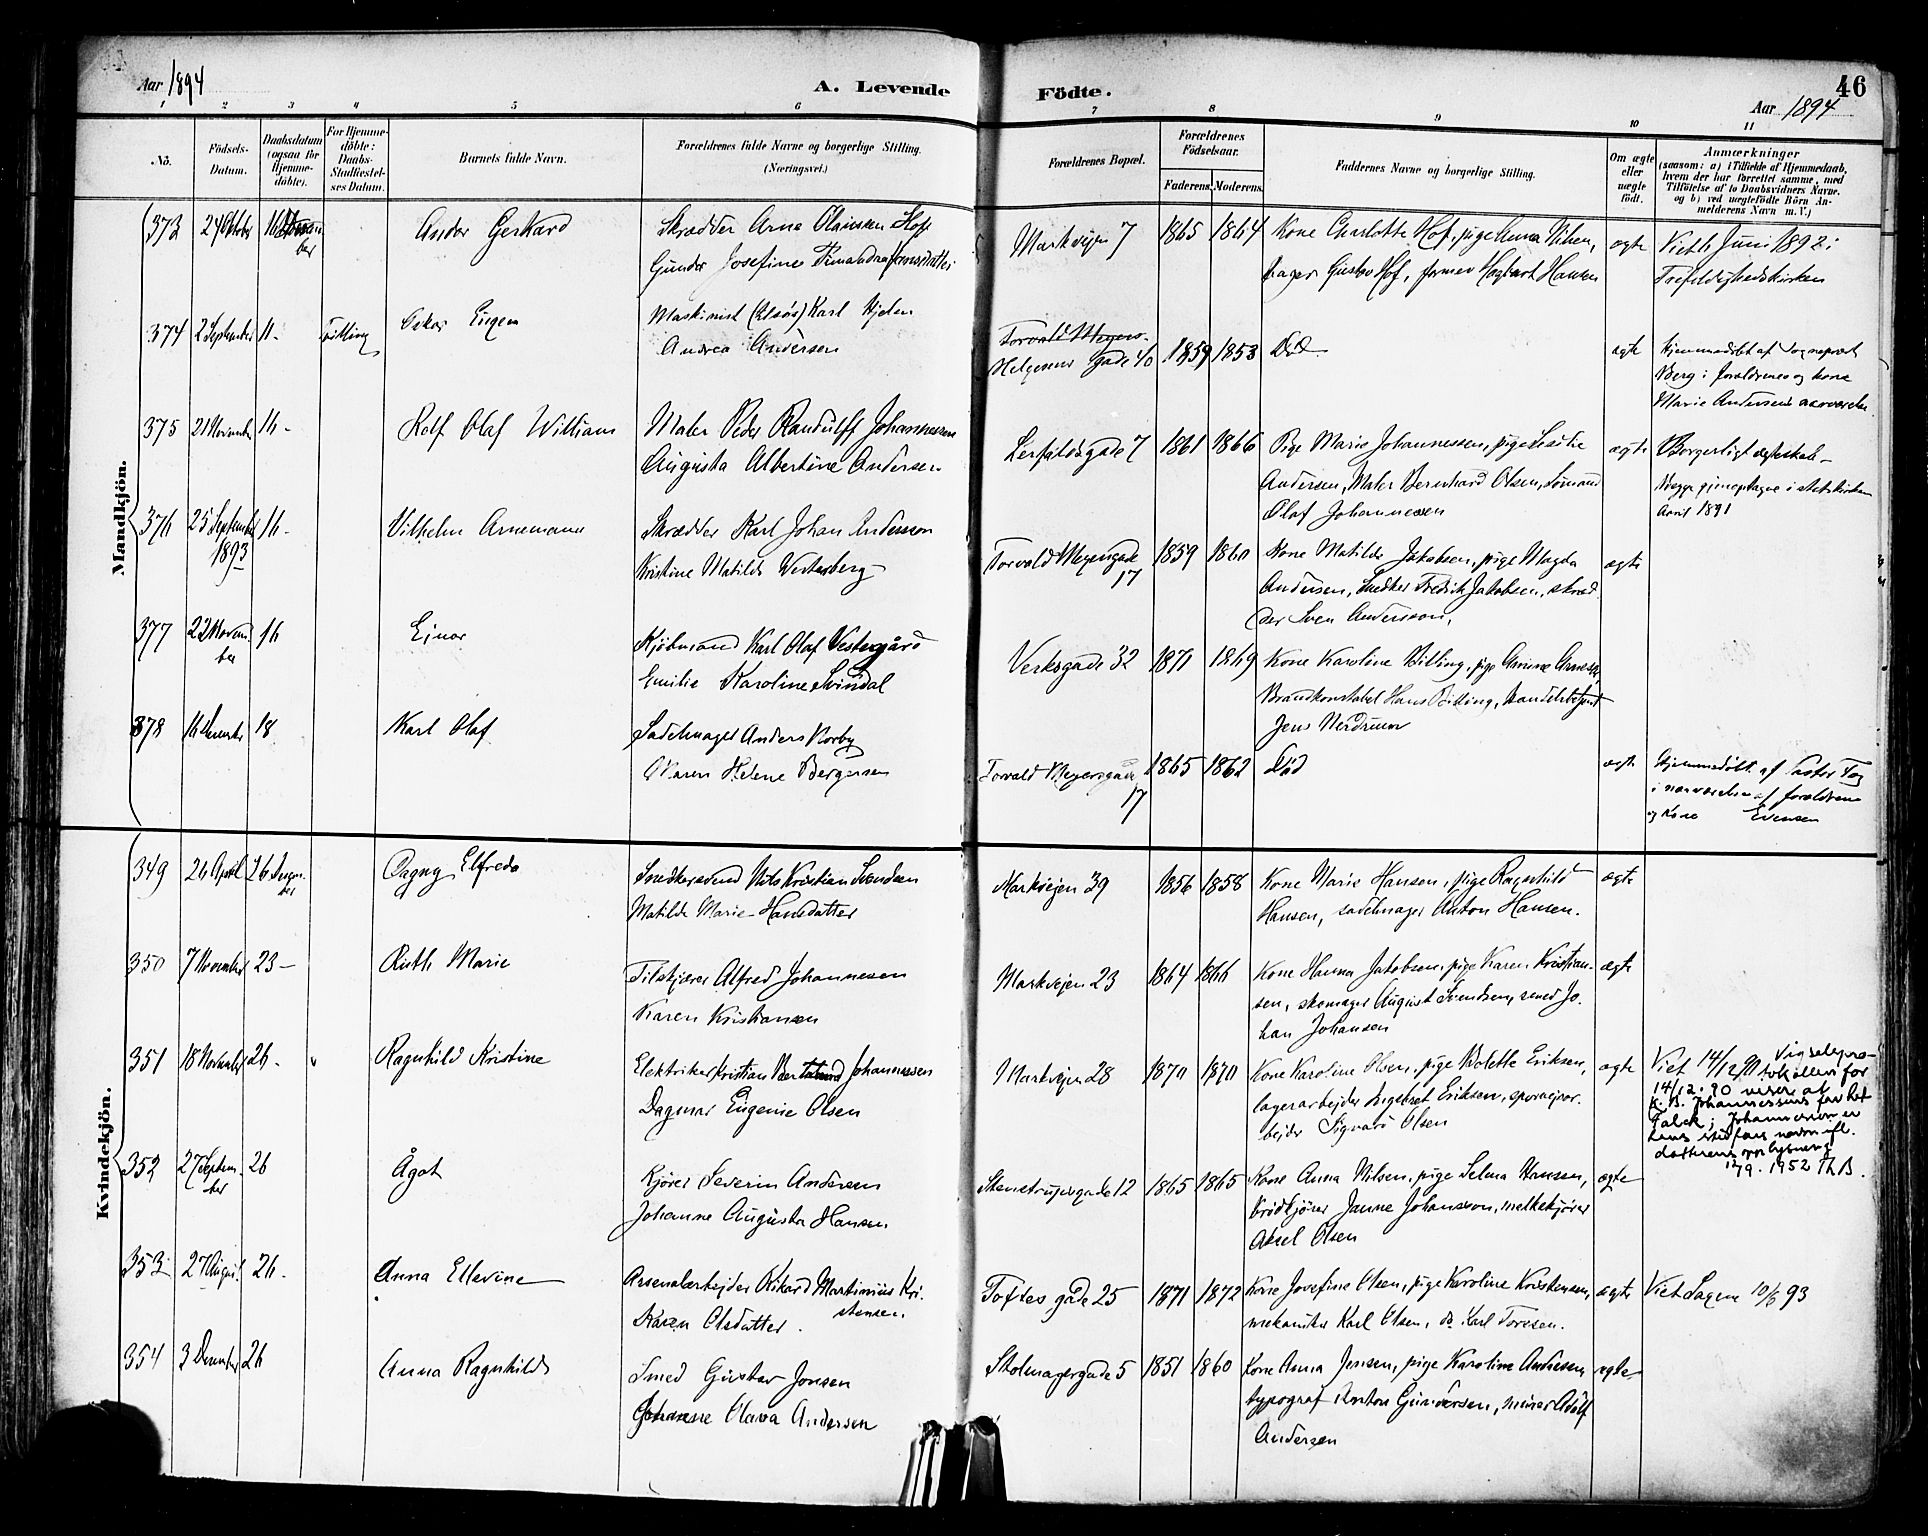 Aar 1894
A. Levende
Födte.
46
Aar 1894
1 2 3 4 5 6 7 8 9 10 11
No.
Födsels-
Datum.
Daabsdatum
(ogsaa for
Hjemme-
döbte).
For Hjemme-
döbte:
Daabs-
Stadfæstel-
ses Datum.
Barnets fulde Navn.
Forældrenes fulde Navne og borgerlige Stilling.
(Næringsvei.)
Forældrenes Bopæl.
Forældrenes
Födselsaar.
Faderens. Moderens.
Faddernes Navne og borgerlige Stilling.
Om ægte
eller
uægte
födt.
Anmærkninger
(saasom: a) i Tilfælde af Hjemmedaab,
hvem der har forrettet samme, med
Tilföielse af to Daabsvidners Navne,
og b) ved uægtefödte Börn An-
melderens Navn m. V.)
Mandkjön.
373 24 Oktober 16 ber
Andor Gerhard
Skrædder Arne Olausen Hof
Gunder Josefine
Markvejen 7
1865 1864
Kone Charlotte Hof, pige Anna Nilsen,
bager Gustav Hof, former Hagbart Hansen
ægte
Viet 6 Juni 1892 i
Trefoldighedskirken
374 2 September 11.
Oskar Eugen
Maskinist Karl Hjelm
Andrea Andersen
Torvald Meyers
Helgesens gade 40
1859 1853
Död
ægte
Hjemmedöbt af Sogneprest
Berg i forældrenes og kone
Marie Andersens nærværelse
375 21 November 16 -
Rolf Olaf William
Maler Peder Randulff Johannessen
Augusta Albertine Andersen
Lerfaldsgade 7
1861 1866
Pige Marie Johannessen, pige
Andersen, Maler Bernhard Olsen, Sömand
Olaf Johannessen
ægte
Borgerligt ægteskab -
Begge gjenoptagne i statskirken
April 1891
376 25 September 16.
1893
Vilhelm Arnemann
Skrædder Karl Johan Andersson
Kristine Matilde Vesterberg
Torvald Meyersgade
17
1859 1860
Kone Matilde Jakobsen, pige Magda
Andersen, Snedker Fredrik Jakobsen, skræd
der Sven Andersson,
ægte
377 22 Novem 16
ber
Ejnar
Kjöbmand Karl Olaf Vestergård
Emilie Karoline Svindal
Verksgade 32
1871 1869
Kone Karoline Billing, pige Amine
Brandkonstabel Hans Billing, Handelsbetjent
Jens Nerdrum
378 16 18.
Karl Olaf
Sadelmager Anders Norby
Maren Helene Bergersen
Torvald Meyersgade
17
1865 1862
Död
ægte
Hjemmedöbt af Pastor
i nærværelse af forældrene
og Kone Evensen
Kvindekjön.
349 26 April 26 Decem-
ber
Dagny Elfreda
Snedkersvend Nils Kristian Svendsen
Matilde Marie Hansdatter
Markvejen 39
1856 1858
Kone Marie Hansen, pige Ragnhild
Hansen, sadelmager Anton Hansen.
ægte
350 7 November 23 -
Ruth Marie
Filskjærer Alfred Johannessen
Karen Kristiansen
Markvejen 23
1864 1866
Kone Hanna Jakobsen, pige Karen Kristian-
sen, skomager August Svendsen, svend Jo-
han Johansen
ægte
351 18 November 26 -
Ragnhild Kristine
Elektriker Kristian Johannessen
Dagmar Eugenie Olsen
Markvejen 28
1870 1870
Kone Karoline Olsen, pige Bolette Eriksen,
lagerarbejder Ingebret Eriksen, sporvejsar-
bejder Sigvard Olsen
ægte
Viet 14/12 90 Vigselspro-
tokollen for
14/12. 90 viser at
K. B. Johannessens far het
Falck; Johannessen er
hans stedfars navn ifl.
datterens opplysning
12/9. 1952 Th B.
352 27 Septem- 26
ber
Ågot
Kjörer Severin Andersen
Johanne Augusta Hansen
Stenstrupsgade 12
1865 1865
Kone Anna Nilsen, pige Selma Hansen,
brödkjörer Janne Johansson, melkekjörer
Aksel Olsen
ægte
353 27 August 26.
Anna Ellevine
Arsenalarbejder Rikard Martinius Kri-
stensen.
Karen Olsdatter.
Toftes gade 25
1871 1872
Kone Josefine Olsen, pige Karoline Kristensen,
mekaniker Karl Olsen, do Karl Toresen.
ægte
Viet Sagene 10/6 93
354 3 December 26
Anna Ragnhild
Smed Gustav Jonsen
Johanne Olava Andersen
Stolmagergade 5
1851 1860
Kone Anna Jensen, pige Karoline Andersen
typograf Anton Gundersen, murer Adolf
Andersen
ægte